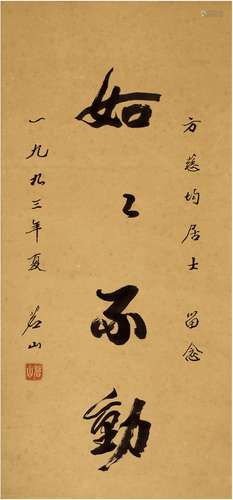 方慈均居士 留念
如〻不動
一九九三年夏
茗山
茗山